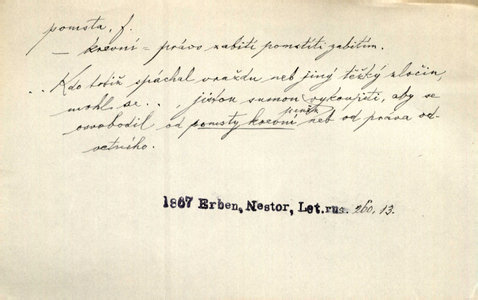 pomsta, f.
— krevní = právo zabití pomstíti zabitím.
... Kdo totiž spáchal vraždu neb jiný těžký zločin,
mohl se... jistou sumou peněz vykoupiti, aby se
osvobodil od pomsty krevní neb od práva od-
vetného.
1867 Erben, Nestor, Let.rus. 260, 13.